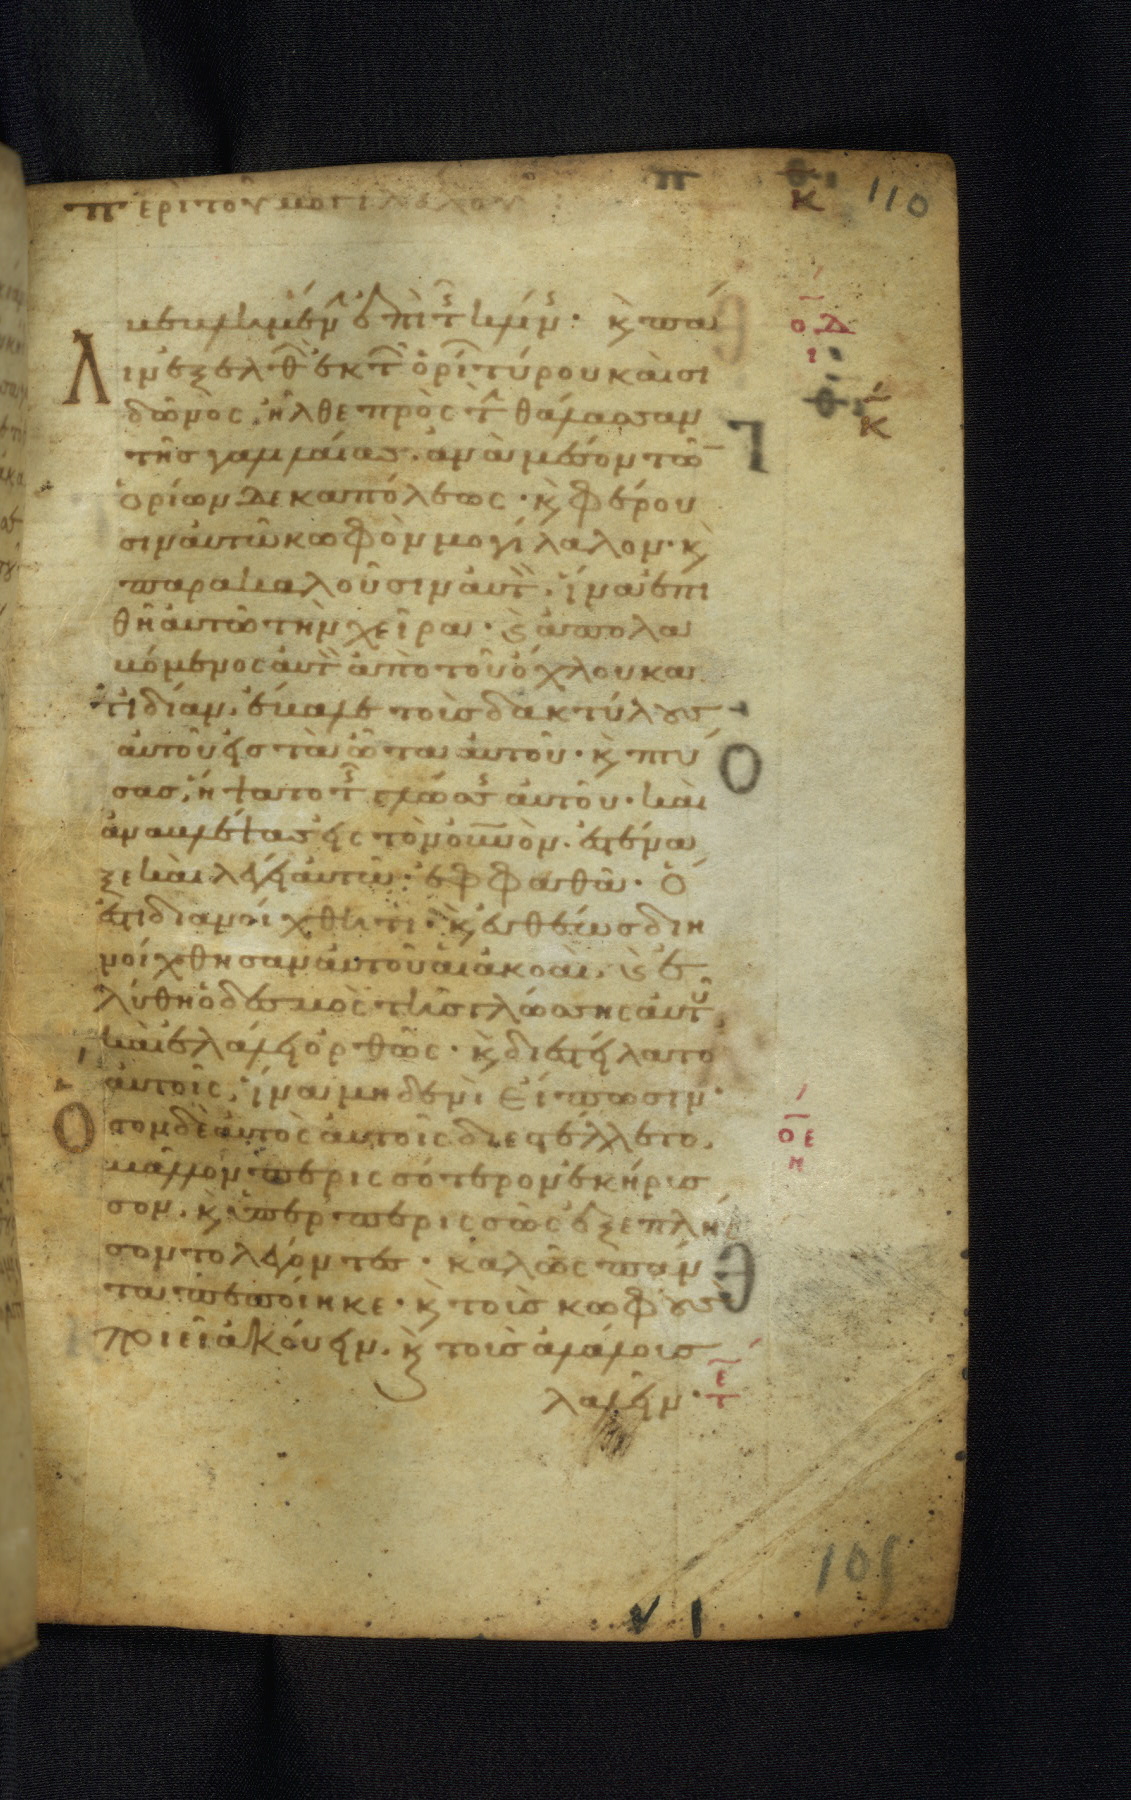 περὶ τοῦ μογιλάλου
110
κεκλιμένην ἐπὶ τ κλίν· κ̀ πά
λιν ἐξελθ ἐκ τ ὁρί τύρου καὶ σι
δῶνος, ἦλθε πρὸς τ θάλασσαν
τῆς γαλιλαίας. ἀνὰ μέσον τῶ
ὁρίων δεκαπόλεως· κ̀ φέρου
σιν αὐτῶ κωφὸν μογγιλάλον· κ̀
παρακαλοῦσιν αὐτ, ἵνα ἐπι
θῆ αὐτῶ τὴν χεῖρα· κ̀ ἀπολα
βόμενος αὐτ ἀπὸ τοῦ ὄχλου κα
τιδίαν. ἔβαλε τοὺς δακτύλους
αὐτοῦ εἰς τὰ ὦτα αὐτοῦ· κ̀ πτύ
σας, ἥψατο τ γλώσσ αὐτοῦ· καὶ
ἀναβλέψας εἰς τὸν οὐνὸν. ἐστένα
ξε καὶ λέγει αὐτῶ· ἐφφαθὰ· ὅ
ἐστι διανοίχθητι· κ̀ εὐθέως διη
νοίχθησαν αὐτοῦ αἱ ἀκοαὶ, κ̀ ἐ
λύθη ὁ δεσμὸς τῆς γλώσσης αὐτοῦ
καὶ ἐλάλει ὀρθῶς· κ̀ διεστείλατο
αὐτοῖς, ἵνα μηδενὶ εἴπωσιν·
ὅσον δὲ αὐτὸς αὐτοῖς διεστέλλετο,
μᾶλλον περισσότερον ἐκήρυσ
σον. κ̀ ὑπερπερισσῶς ἐξεπλή
σοντο λέγοντες· καλῶς πάν
τα πεποίηκε· κ̀ τοὺς κωφοὺς
ποιεῖ ἀκούειν. κ̀ τοὺς ἀλάλους
λαλεῖν·
105